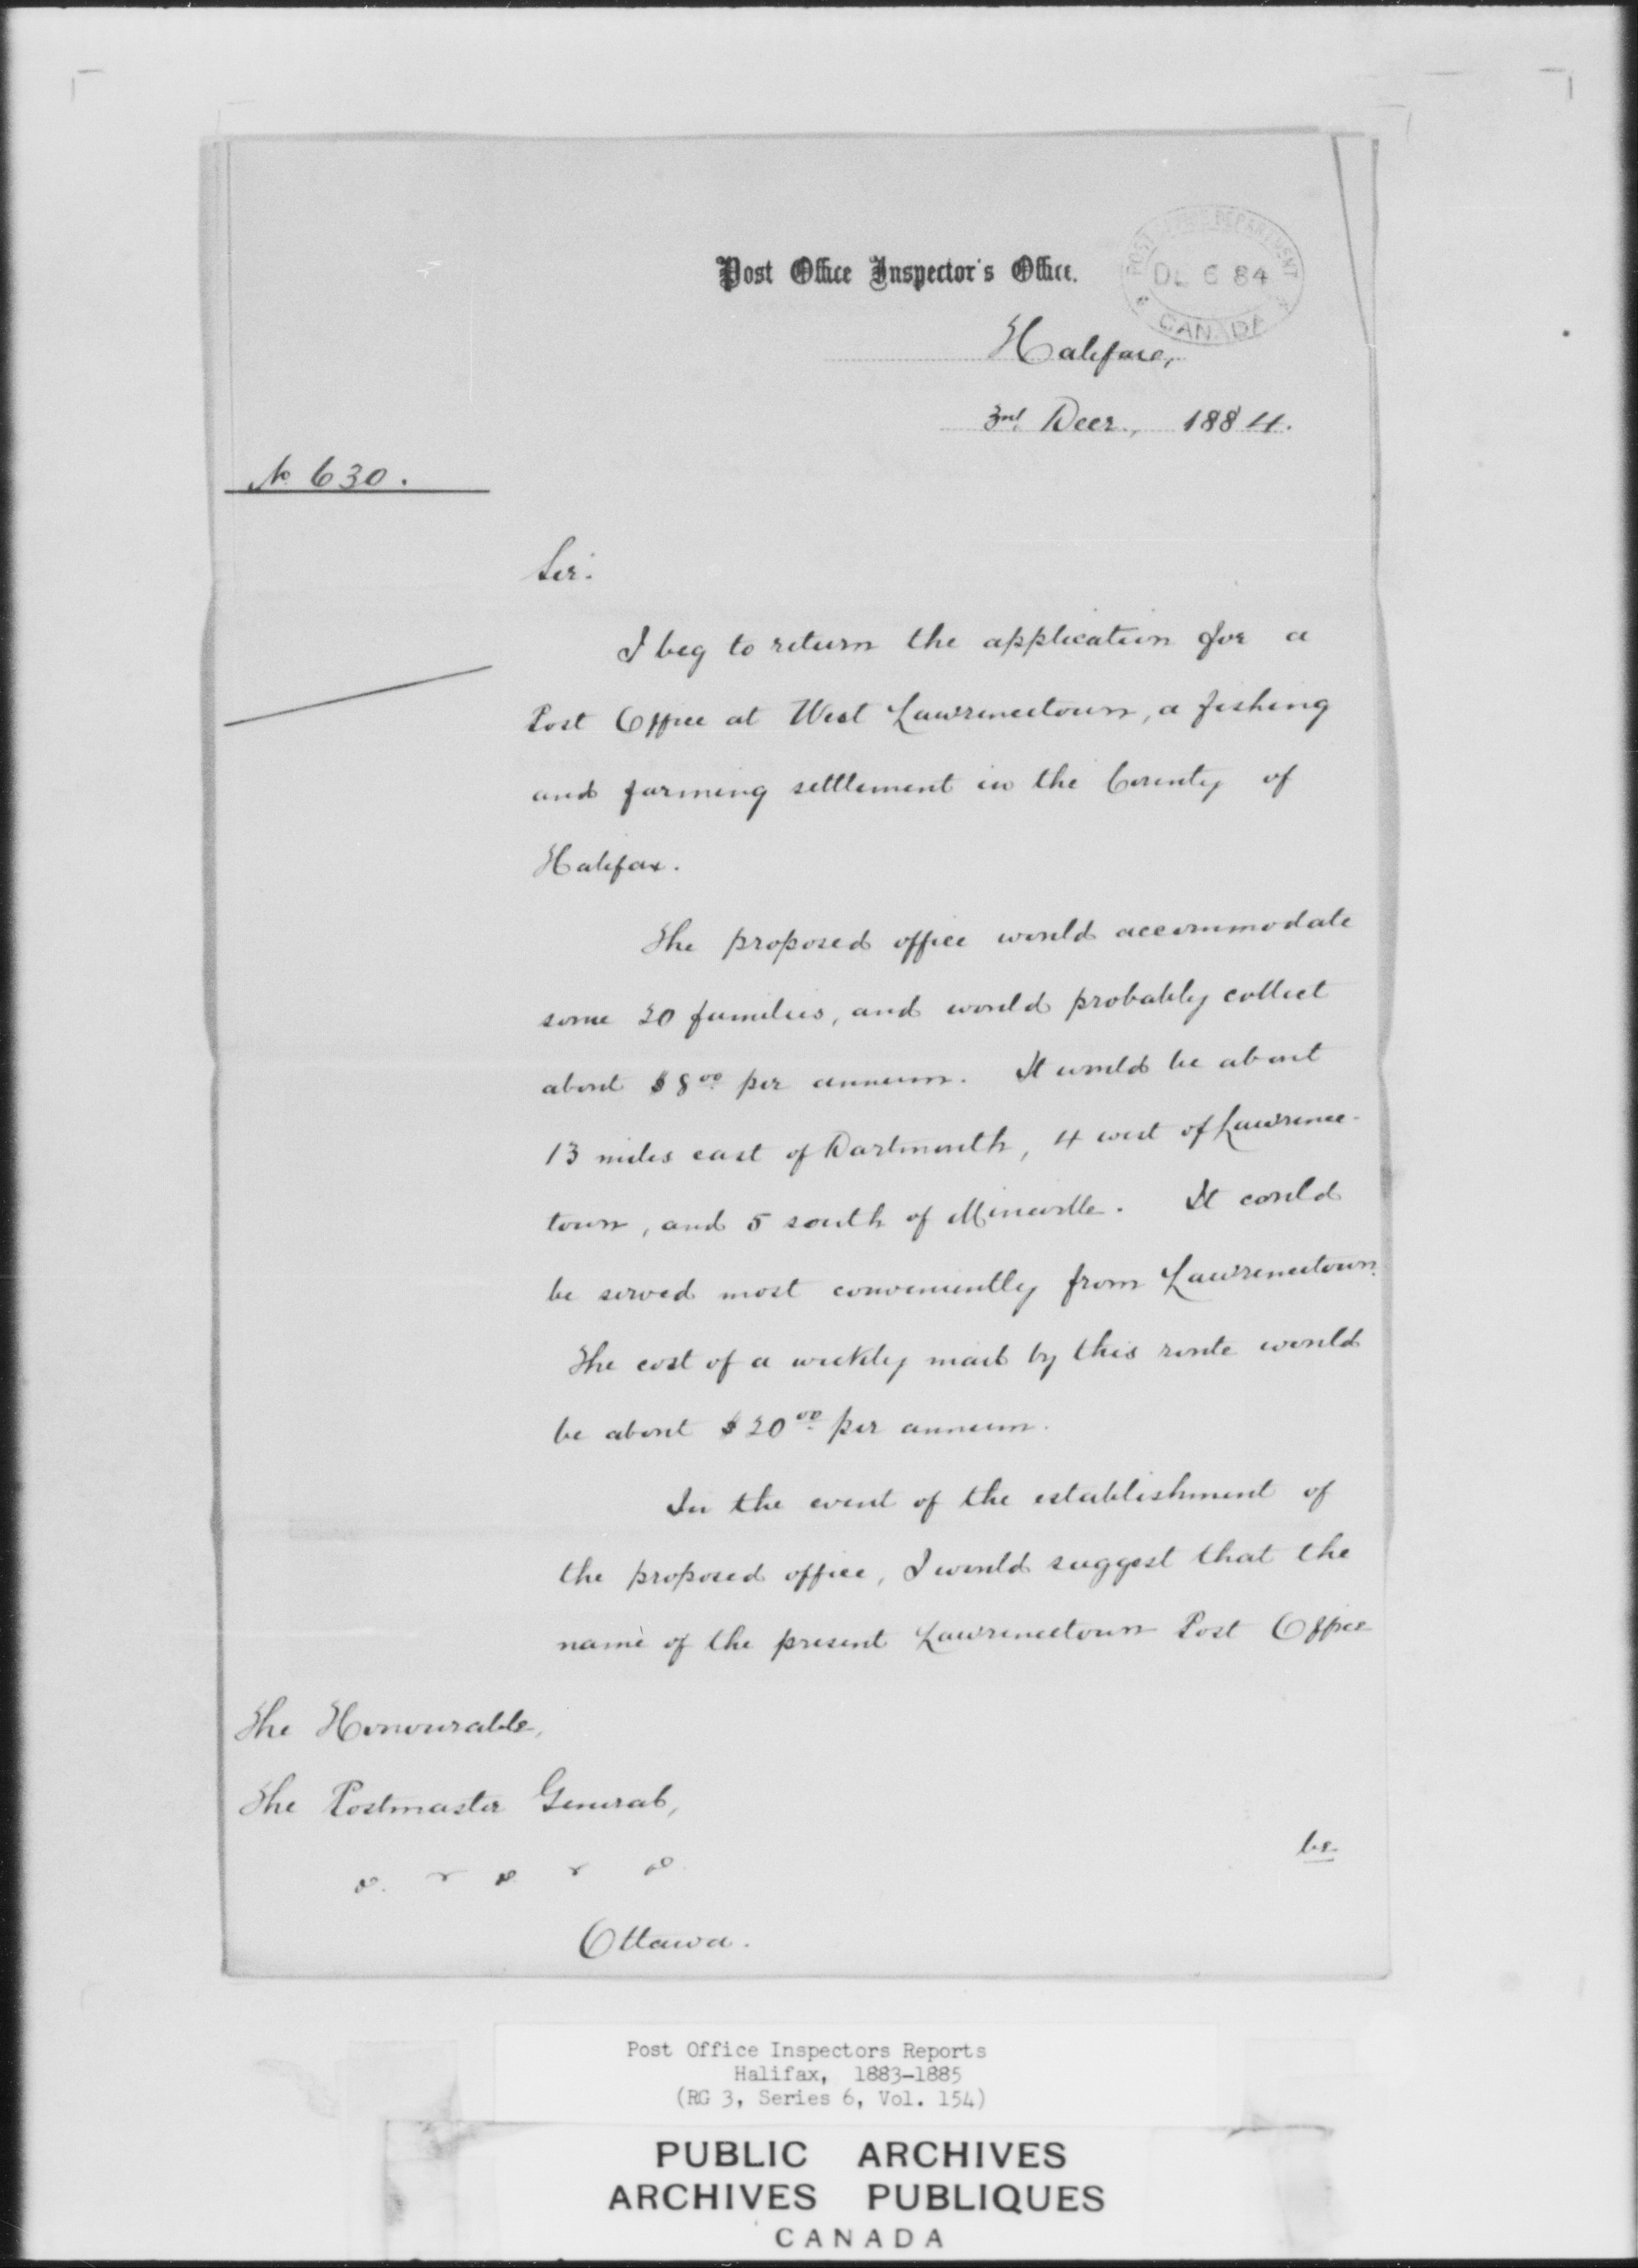 Post Office Inspector's Office.
POST OFFICE DEPARTMENT
DE 6 84
CANADA
Halifax,
3rd. Decr., 1884.
No 630.
Sir.
I beg to return the application for a
Post Office at West Lawrencetown, a fishing
and farming settlement in the County of
Halifax.
The proposed office would accommodate
some 20 families, and would probably collect
about $8.00 per annum. It would be about
13 miles east of Dartmouth, 4 west of Lawrence-
town, and 5 south of Mineville. It could
be served most conveniently from Lawrencetown.
The cost of a weekly mail by this route would
be about $20.00 per annum.
In the event of the establishment of
the proposed office, I would suggest that the
name of the present Lawrencetown Post Office
The Honourable,
The Postmaster General,
be
Ottawa.
Post Office Inspectors Reports
Halifax, 1883-1885
(RG 3, Series 6, Vol. 154)
PUBLIC ARCHIVES
ARCHIVES PUBLIQUES
CANADA